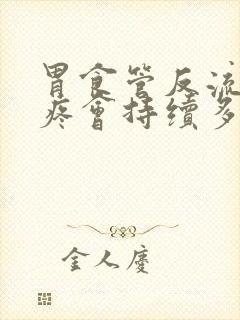 胃食管反流
疼會持續多
金人慶